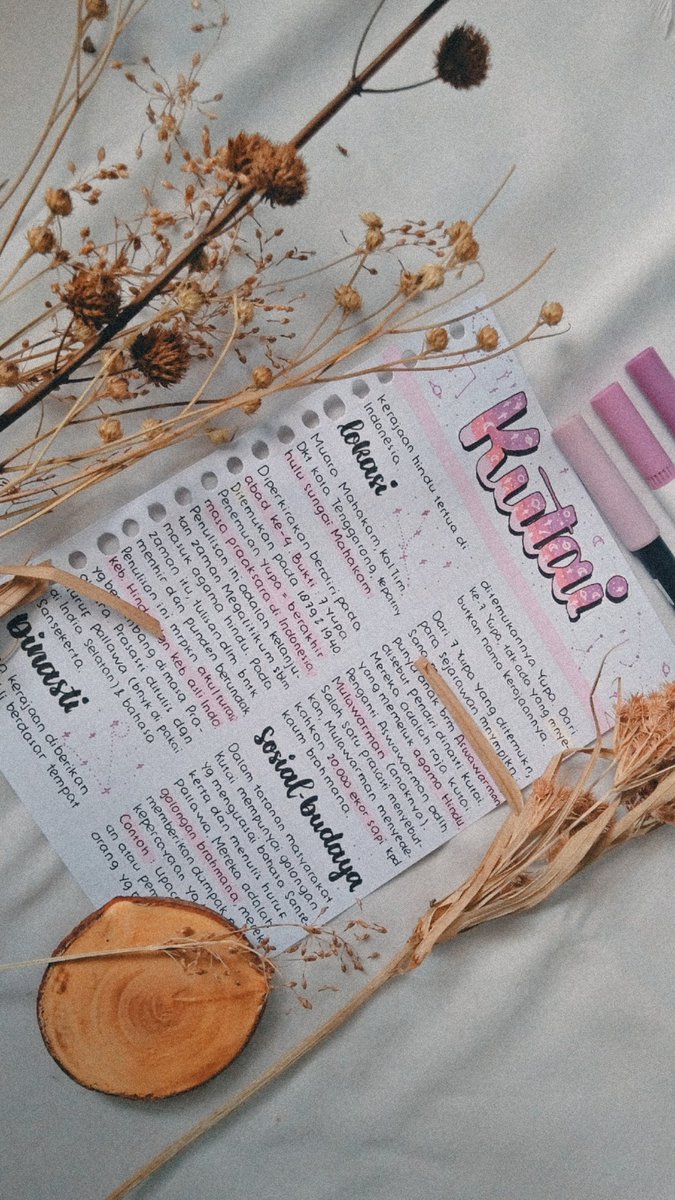 Kutai
kerajaan hindu tertua di
Indonesia.
lokasi
Muara Mahakam, Kaltim.
Dkt kota Tenggarong, tepatny
hulu sungai Mahakam
Diperkirakan berdiri pada
abad ke-4. Bukti : 7 Yupa
Ditemukan pada 1879 & 1940
Penemuan Yupa = berakhir
masa praaksara di Indonesia.
Penulisan ini adalah kelanju-
tan zaman Megalitikum sblm
masuk agama hindu. Pada
zaman itu, tulisan dlm bntk
menhir dan punden berundak
Penulisan ini mrpkn akulturasi
keb. Hindu keb. asli Indo
yg berkembang di masa Pra-
Prasasti ditulis dgn
huruf pallawa (bnyk di pakai
di India Selatan) & bahasa
Sansekerta.
Dinasti
kerajaan diberikan
berdasar tempat
ditemukannya Yupa. Dari
ke-7 Yupa, tak ada yang menye-
butkan nama kerajaannya.
Dari 7 Yupa yang ditemukn,
para sejarawan menyimpulkn
punya anak brnm Aswawarman
disebut pendiri dinasti kutai
Mereka adalah raja kutai
yang memeluk agama Hindu
Pengganti Aswawarman adlh
Mulawarman (anaknya).
Salah satu prasasti menyebut
kan Mulawarman menyedek
kahkan 20.000 ekor sapi kpd
kaum brahmana.
Sosial-budaya
Dalam tatanan masyarakat
Kutai mempunyai golongan
yg menguasai bahasa Sanse
kerta dan menulis huruf
pallawa. Mereka adalah
golongan brahmana, merek
memberikan dumpak
kepercayaan ya
Contoh : Upaca
an atau pem
orang yg